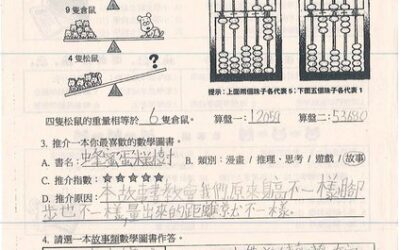 9隻倉鼠
4隻松鼠
?
提示:上面兩個珠子各代表5;下面五個珠子各代表1
四隻松鼠的重量相等於 6 隻倉鼠。 算盤一: 算盤二:
3. 推介一本你最喜歡的數學圖書。
A. 書名: 蜂蜜蛋糕樹 B. 類別:漫畫 / 推理‧思考 / 遊戲 / 故事
C. 推介指數:☆☆☆☆☆
D. 推介原因:本故事教會我們原來 不一樣腳
步也不一樣量出來的距離 不一樣。
4. 請選一本故事類數學圖書作答。